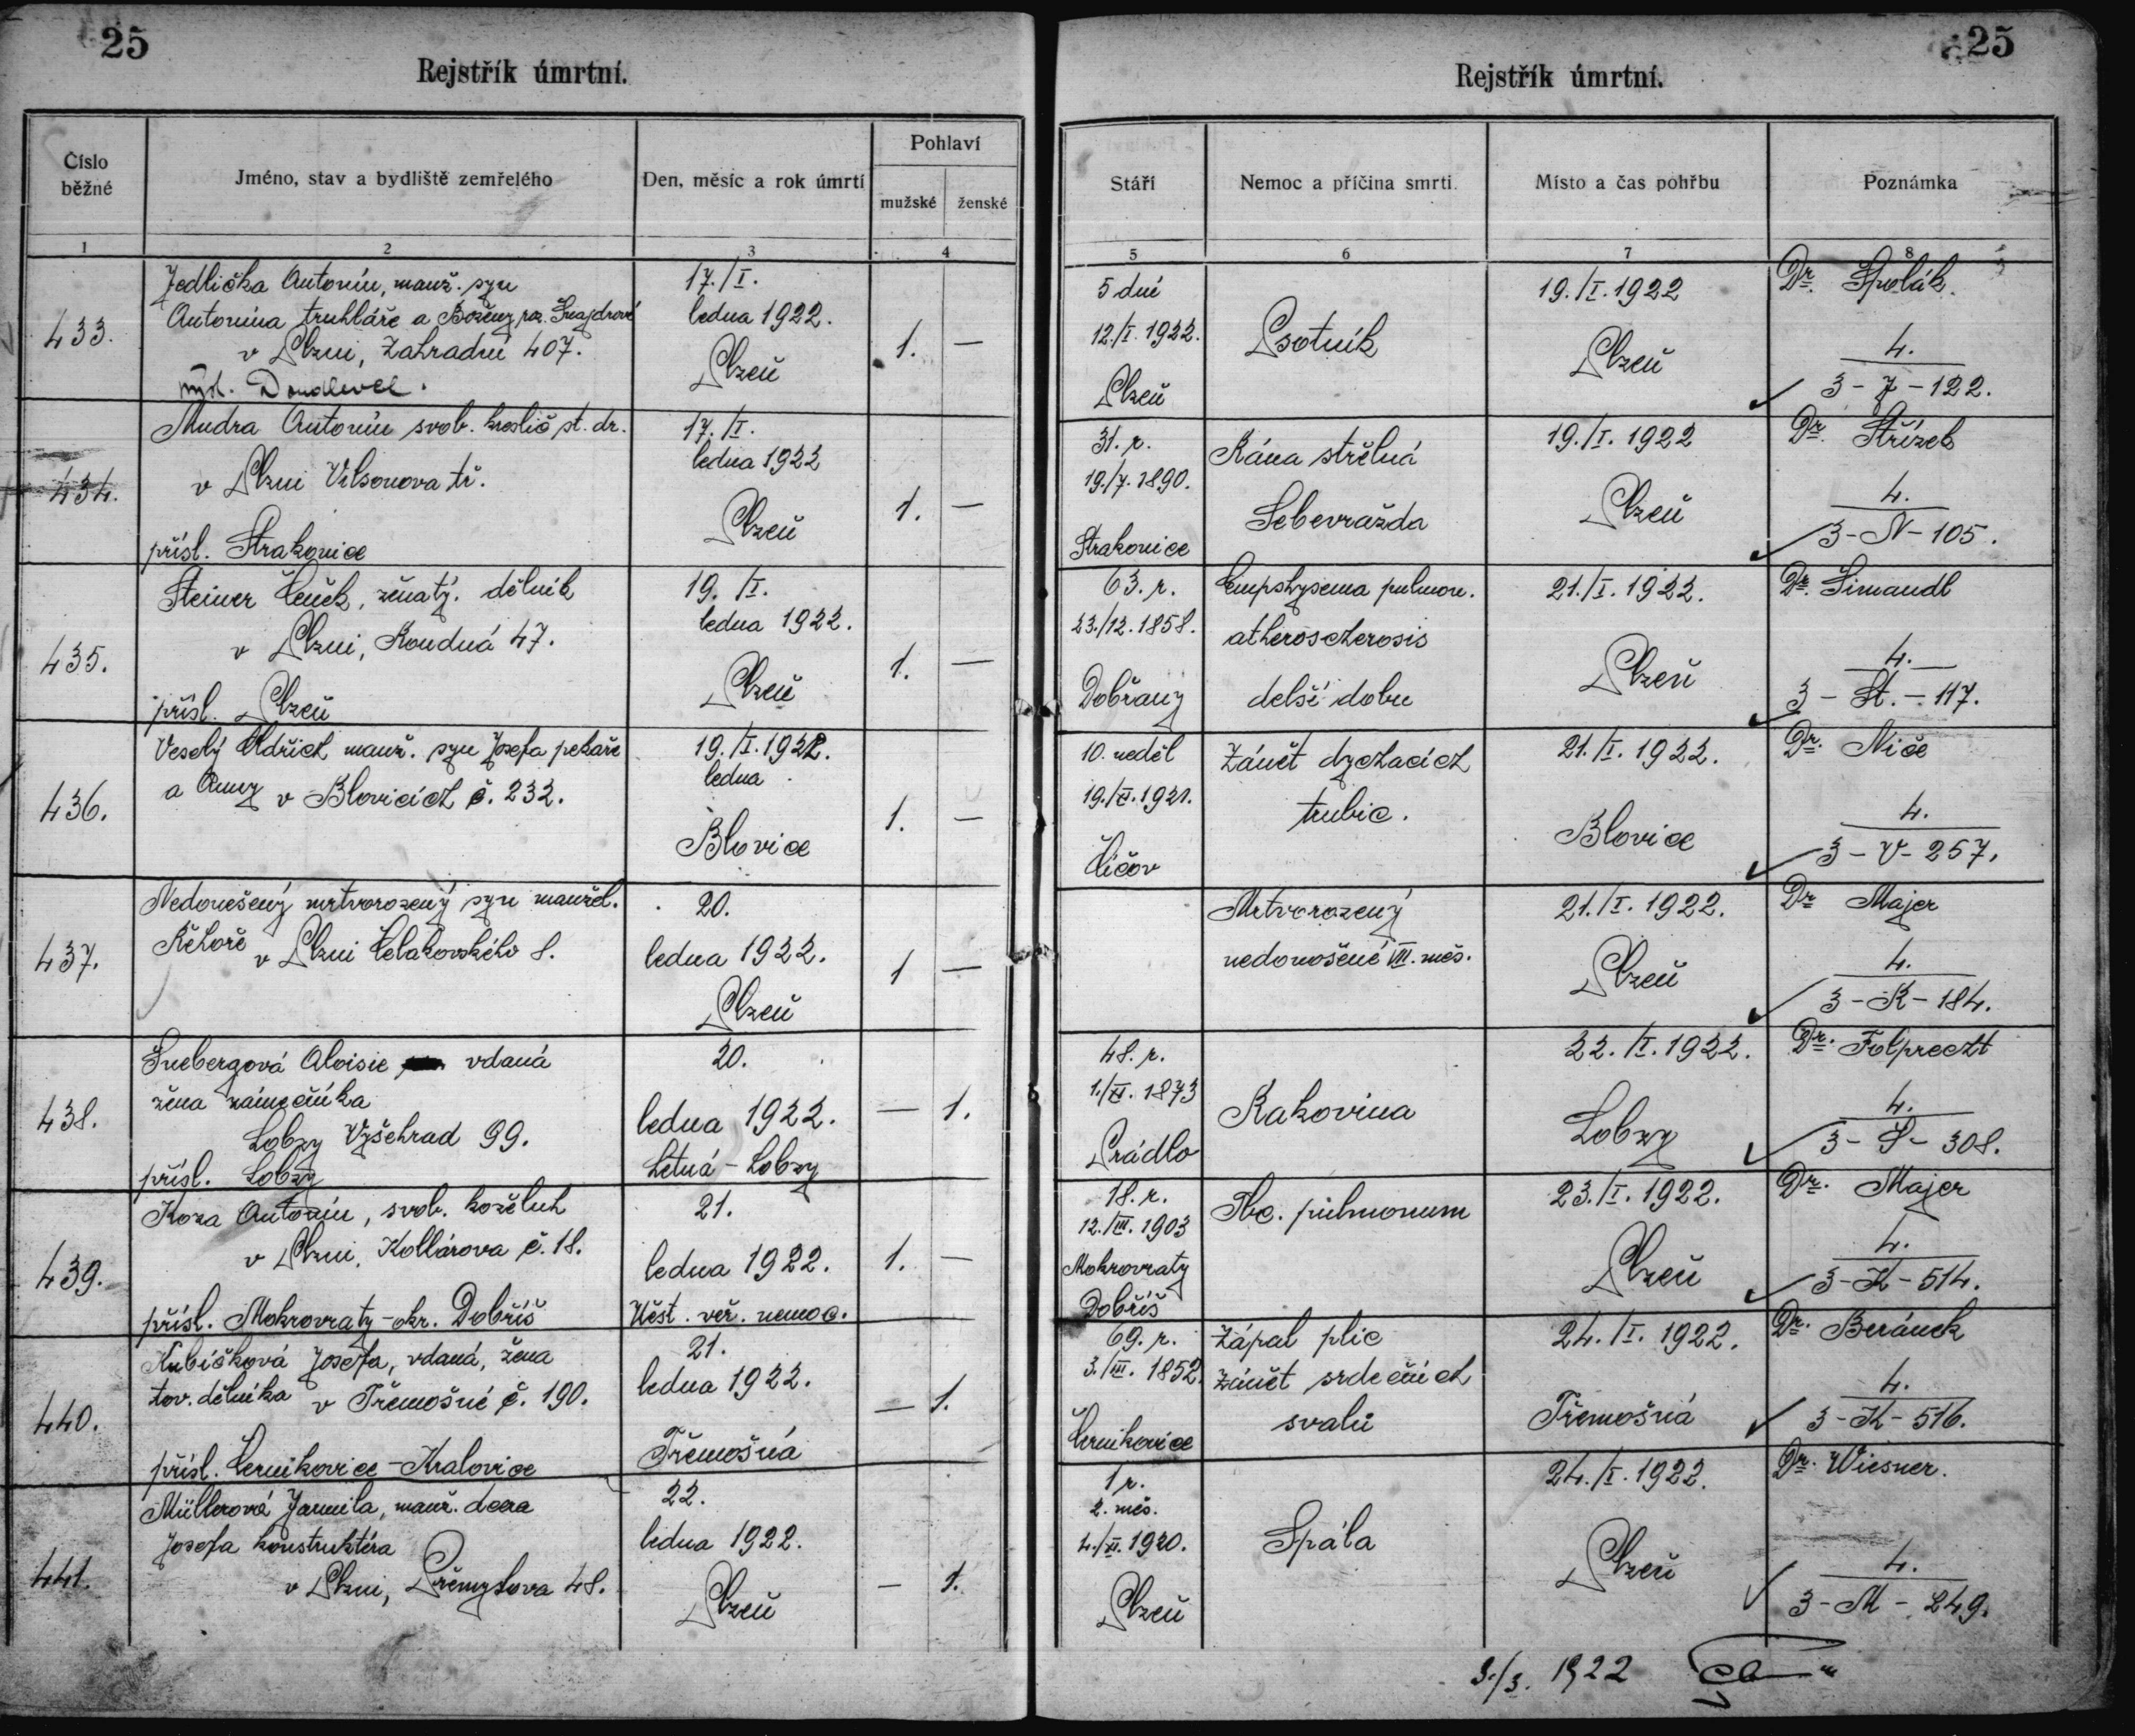 25
Rejstřík úmrtní.
Číslo běžné
Jméno, stav a bydliště zemřelého
Den, měsíc a rok úmrtí
Pohlaví
mužské ženské
1 2 3 4
433.
Jedlička Antonín, manž. syn
Antonína truhláře a Boženy roz. Šnajdrové
v Plzni, Zahradní 407.
nyní. Doudlevce.
17./I.
ledna 1922.
Plzeň
1. —
434.
Mudra Antonín svob. st. dr.
v Plzni Vilsonova tř.
přísl. Strakonice
17./I.
ledna 1922
Plzeň
1. —
435.
Steiner Čeněk, ženatý. dělník
v Plzni, Roudná 47.
přísl. Plzeň
19./I.
ledna 1922.
Plzeň
1. —
436.
Veselý Oldřich manž. syn Josefa pekaře
a Anny v Blovicích č. 232.
19./I. 1922.
ledna
Blovice
1. —
437.
Nedonešený mrtvorozený syn manžel.
Řehoře v Plzni Čelakovského 8.
20.
ledna 1922.
Plzeň
1 —
438.
Šnebergová Aloisie vdaná
žena zámečníka
Lobzy Vyšehrad 99.
přísl. Lobzy
20.
ledna 1922.
Letná - Lobzy
— 1.
439.
Koza Antonín, svob. koželuh
v Plzni, Kollárova č. 18.
přísl. Mokrovraty - okr. Dobříš
21.
ledna 1922.
Měst. veř. nemoc.
1. —
440.
Kubíčková Josefa, vdaná, žena
tov. dělníka v Třemošné č. 190.
přísl. Černíkovice - Kralovice
21.
ledna 1922.
Třemošná
— 1.
441.
Müllerová Jarmila, manž. dcera
Josefa konstruktéra
v Plzni, Přemyslova 48.
22.
ledna 1922.
Plzeň
— 1.
25
Rejstřík úmrtní.
Stáří
Nemoc a příčina smrti
Místo a čas pohřbu
Poznámka
5 6 7 8
5 dní
12./I. 1922.
Plzeň
Psotník
19./I. 1922
Plzeň
Dr. Špolák.
4.
3 - J - 122.
31. r.
19./7. 1890.
Strakonice
Rána střelná
Sebevražda
19./I. 1922
Plzeň
Dr. Střížek
4.
3 - N - 105.
63. r.
23./12. 1858.
Dobřany
Emphysema pulmon.
atherosclerosis
delší dobu
21./I. 1922.
Plzeň
Dr. Šimandl
4.
3 - St. - 117.
10. neděl
19./XI. 1921.
Číčov
Zánět dychacích
trubic.
21./I. 1922.
Blovice
Dr. Niče
4.
3 - V - 257.
Mrtvorozený
nedonošené VIII. měs.
21./I. 1922.
Plzeň
Dr Majer
4.
3 - Ř - 184.
48. r.
1./XI. 1873
Prádlo
Rakovina
22./I. 1922.
Lobzy
Dr. Folprecht
4.
3 - Š - 308.
18. r.
12./III. 1903
Mokrovraty
Dobříš
Tbc. pulmonum
23./I. 1922.
Plzeň
Dr. Majer
4.
3 - K - 514.
69. r.
3./III. 1852.
Černikovice
Zápal plic
Zánět srdečních
svalů
24./I. 1922.
Třemošná
Dr. Beránek
4.
3 - K - 516.
1 r.
2. měs.
4./XI. 1920.
Plzeň
Spála
24./I. 1922.
Plzeň
Dr. Wiesner.
4.
3 - M - 249.
3./3. 1922